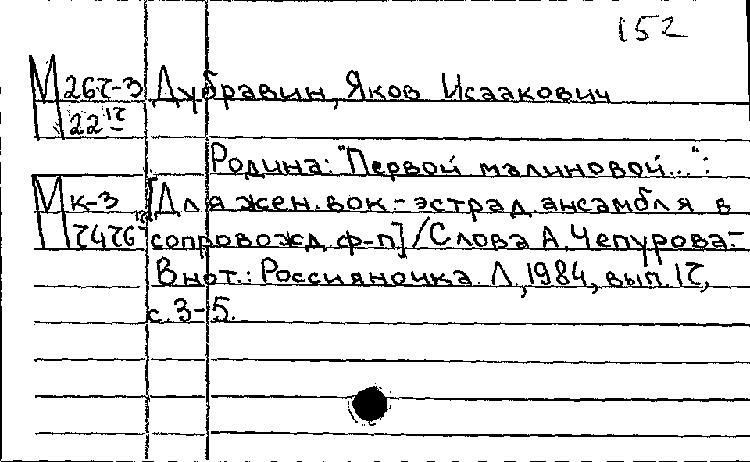 152
М 267-3 Дубравин, Яков Исаакович
22 17
Родина: "Первой малиновой...":
М к-3 [Для жен. вок.-эстрад. ансамбля в
7476 сопровожд. ф-п] / Слова А. Чепурова.-
В нот.: Россияночка. Л., 1984, вып. 17,
с. 3-5.